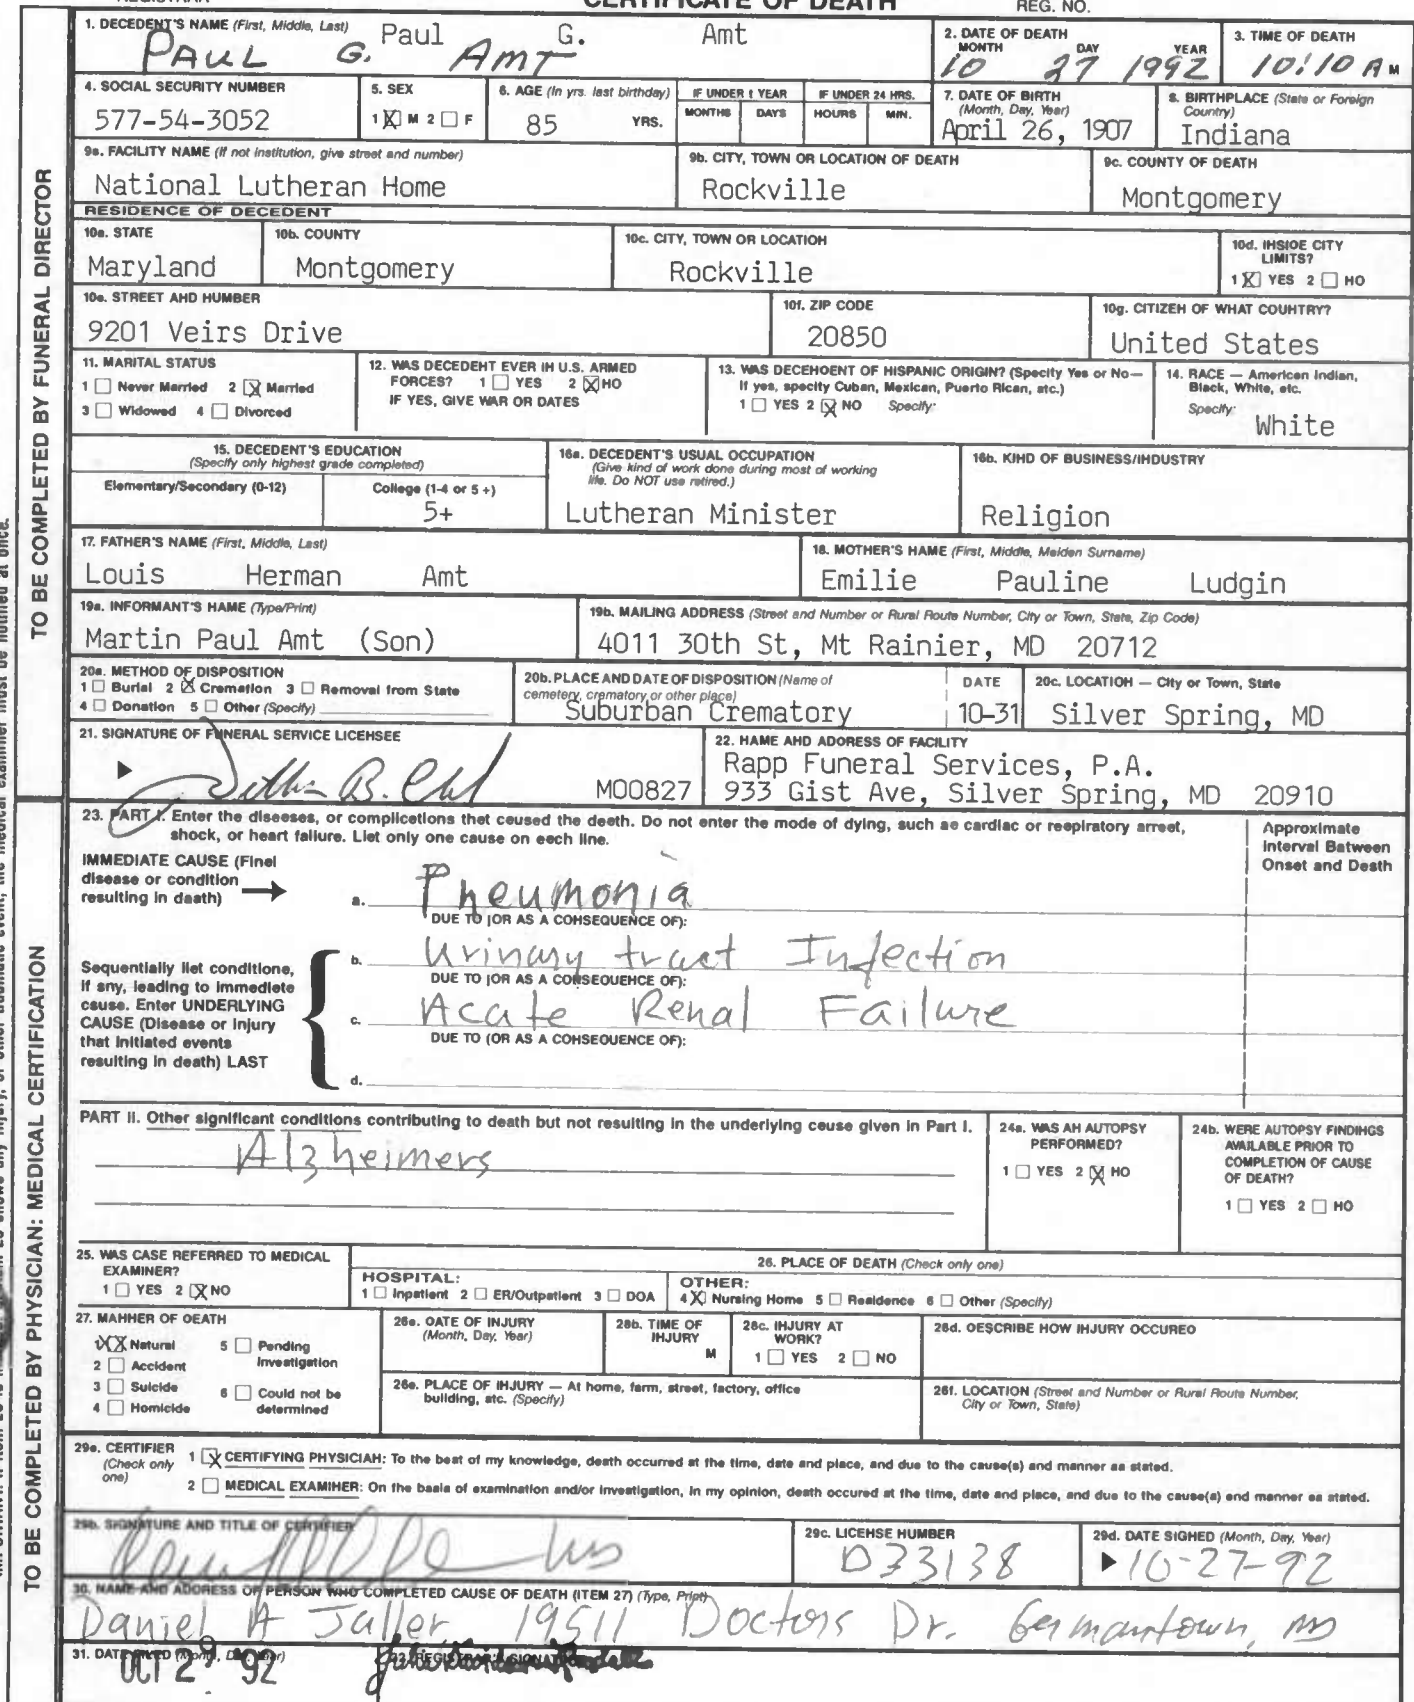 CERTIFICATE OF DEATH
REG. NO.
1. DECEDENT'S NAME (First, Middle, Last)
Paul G. Amt
PAUL G. AMT
2. DATE OF DEATH
MONTH DAY YEAR
10 27 1992
3. TIME OF DEATH
10:10 A M
4. SOCIAL SECURITY NUMBER
577-54-3052
5. SEX
1 X M 2 F
6. AGE (In yrs. last birthday)
85 YRS.
IF UNDER 1 YEAR
MONTHS DAYS
IF UNDER 24 HRS.
HOURS MIN.
7. DATE OF BIRTH
(Month, Day, Year)
April 26, 1907
8. BIRTHPLACE (State or Foreign
Country)
Indiana
9a. FACILITY NAME (If not institution, give street and number)
National Lutheran Home
9b. CITY, TOWN OR LOCATION OF DEATH
Rockville
9c. COUNTY OF DEATH
Montgomery
RESIDENCE OF DECEDENT
10a. STATE
Maryland
10b. COUNTY
Montgomery
10c. CITY, TOWN OR LOCATION
Rockville
10d. INSIDE CITY
LIMITS?
1 X YES 2 NO
10e. STREET AND NUMBER
9201 Veirs Drive
10f. ZIP CODE
20850
10g. CITIZEN OF WHAT COUNTRY?
United States
11. MARITAL STATUS
1 Never Married 2 X Married
3 Widowed 4 Divorced
12. WAS DECEDENT EVER IN U.S. ARMED
FORCES? 1 YES 2 X NO
IF YES, GIVE WAR OR DATES
13. WAS DECENDENT OF HISPANIC ORIGIN? (Specify Yes or No—
If yes, specify Cuban, Mexican, Puerto Rican, etc.)
1 YES 2 X NO Specify:
14. RACE — American Indian,
Black, White, etc.
Specify:
White
15. DECEDENT'S EDUCATION
(Specify only highest grade completed)
Elementary/Secondary (0-12)
College (1-4 or 5+)
5+
16a. DECEDENT'S USUAL OCCUPATION
(Give kind of work done during most of working
life. Do NOT use retired.)
Lutheran Minister
16b. KIND OF BUSINESS/INDUSTRY
Religion
17. FATHER'S NAME (First, Middle, Last)
Louis Herman Amt
18. MOTHER'S NAME (First, Middle, Maiden Surname)
Emilie Pauline Ludgin
19a. INFORMANT'S NAME (Type/Print)
Martin Paul Amt (Son)
19b. MAILING ADDRESS (Street and Number or Rural Route Number, City or Town, State, Zip Code)
4011 30th St, Mt Rainier, MD 20712
20a. METHOD OF DISPOSITION
1 Burial 2 X Cremation 3 Removal from State
4 Donation 5 Other (Specify)
20b. PLACE AND DATE OF DISPOSITION (Name of
cemetery, crematory or other place)
Suburban Crematory
DATE
10-31
20c. LOCATION — City or Town, State
Silver Spring, MD
21. SIGNATURE OF FUNERAL SERVICE LICENSEE
M00827
22. NAME AND ADDRESS OF FACILITY
Rapp Funeral Services, P.A.
933 Gist Ave, Silver Spring, MD 20910
23. PART I. Enter the diseases, or complications that caused the death. Do not enter the mode of dying, such as cardiac or respiratory arrest,
shock, or heart failure. List only one cause on each line.
Approximate
Interval Between
Onset and Death
IMMEDIATE CAUSE (Final
disease or condition
resulting in death)
a. Pneumonia
DUE TO (OR AS A CONSEQUENCE OF):
b. Urinary tract Infection
DUE TO (OR AS A CONSEQUENCE OF):
c. Acute Renal Failure
DUE TO (OR AS A CONSEQUENCE OF):
d.
Sequentially list conditions,
if any, leading to immediate
cause. Enter UNDERLYING
CAUSE (Disease or injury
that initiated events
resulting in death) LAST
PART II. Other significant conditions contributing to death but not resulting in the underlying cause given in Part I.
Alzheimers
24a. WAS AN AUTOPSY
PERFORMED?
1 YES 2 X NO
24b. WERE AUTOPSY FINDINGS
AVAILABLE PRIOR TO
COMPLETION OF CAUSE
OF DEATH?
1 YES 2 NO
25. WAS CASE REFERRED TO MEDICAL
EXAMINER?
1 YES 2 X NO
26. PLACE OF DEATH (Check only one)
HOSPITAL:
1 Inpatient 2 ER/Outpatient 3 DOA
OTHER:
4 X Nursing Home 5 Residence 6 Other (Specify)
27. MANNER OF DEATH
1 XX Natural 5 Pending
Investigation
2 Accident
3 Suicide 6 Could not be
determined
4 Homicide
28a. DATE OF INJURY
(Month, Day, Year)
28b. TIME OF
INJURY
M
28c. INJURY AT
WORK?
1 YES 2 NO
28d. DESCRIBE HOW INJURY OCCURED
28e. PLACE OF INJURY — At home, farm, street, factory, office
building, etc. (Specify)
28f. LOCATION (Street and Number or Rural Route Number,
City or Town, State)
29a. CERTIFIER
(Check only
one)
1 X CERTIFYING PHYSICIAN: To the best of my knowledge, death occurred at the time, date and place, and due to the cause(s) and manner as stated.
2 MEDICAL EXAMINER: On the basis of examination and/or investigation, in my opinion, death occured at the time, date and place, and due to the cause(s) and manner as stated.
29b. SIGNATURE AND TITLE OF CERTIFIER
29c. LICENSE NUMBER
D33138
29d. DATE SIGNED (Month, Day, Year)
10-27-92
30. NAME AND ADDRESS OF PERSON WHO COMPLETED CAUSE OF DEATH (ITEM 27) (Type, Print)
Daniel A Jaller 19511 Doctors Dr. Germantown, MD
31. DATE FILED (Month, Day, Year)
OCT 29 92
32. REGISTRAR'S SIGNATURE
TO BE COMPLETED BY FUNERAL DIRECTOR
TO BE COMPLETED BY PHYSICIAN: MEDICAL CERTIFICATION